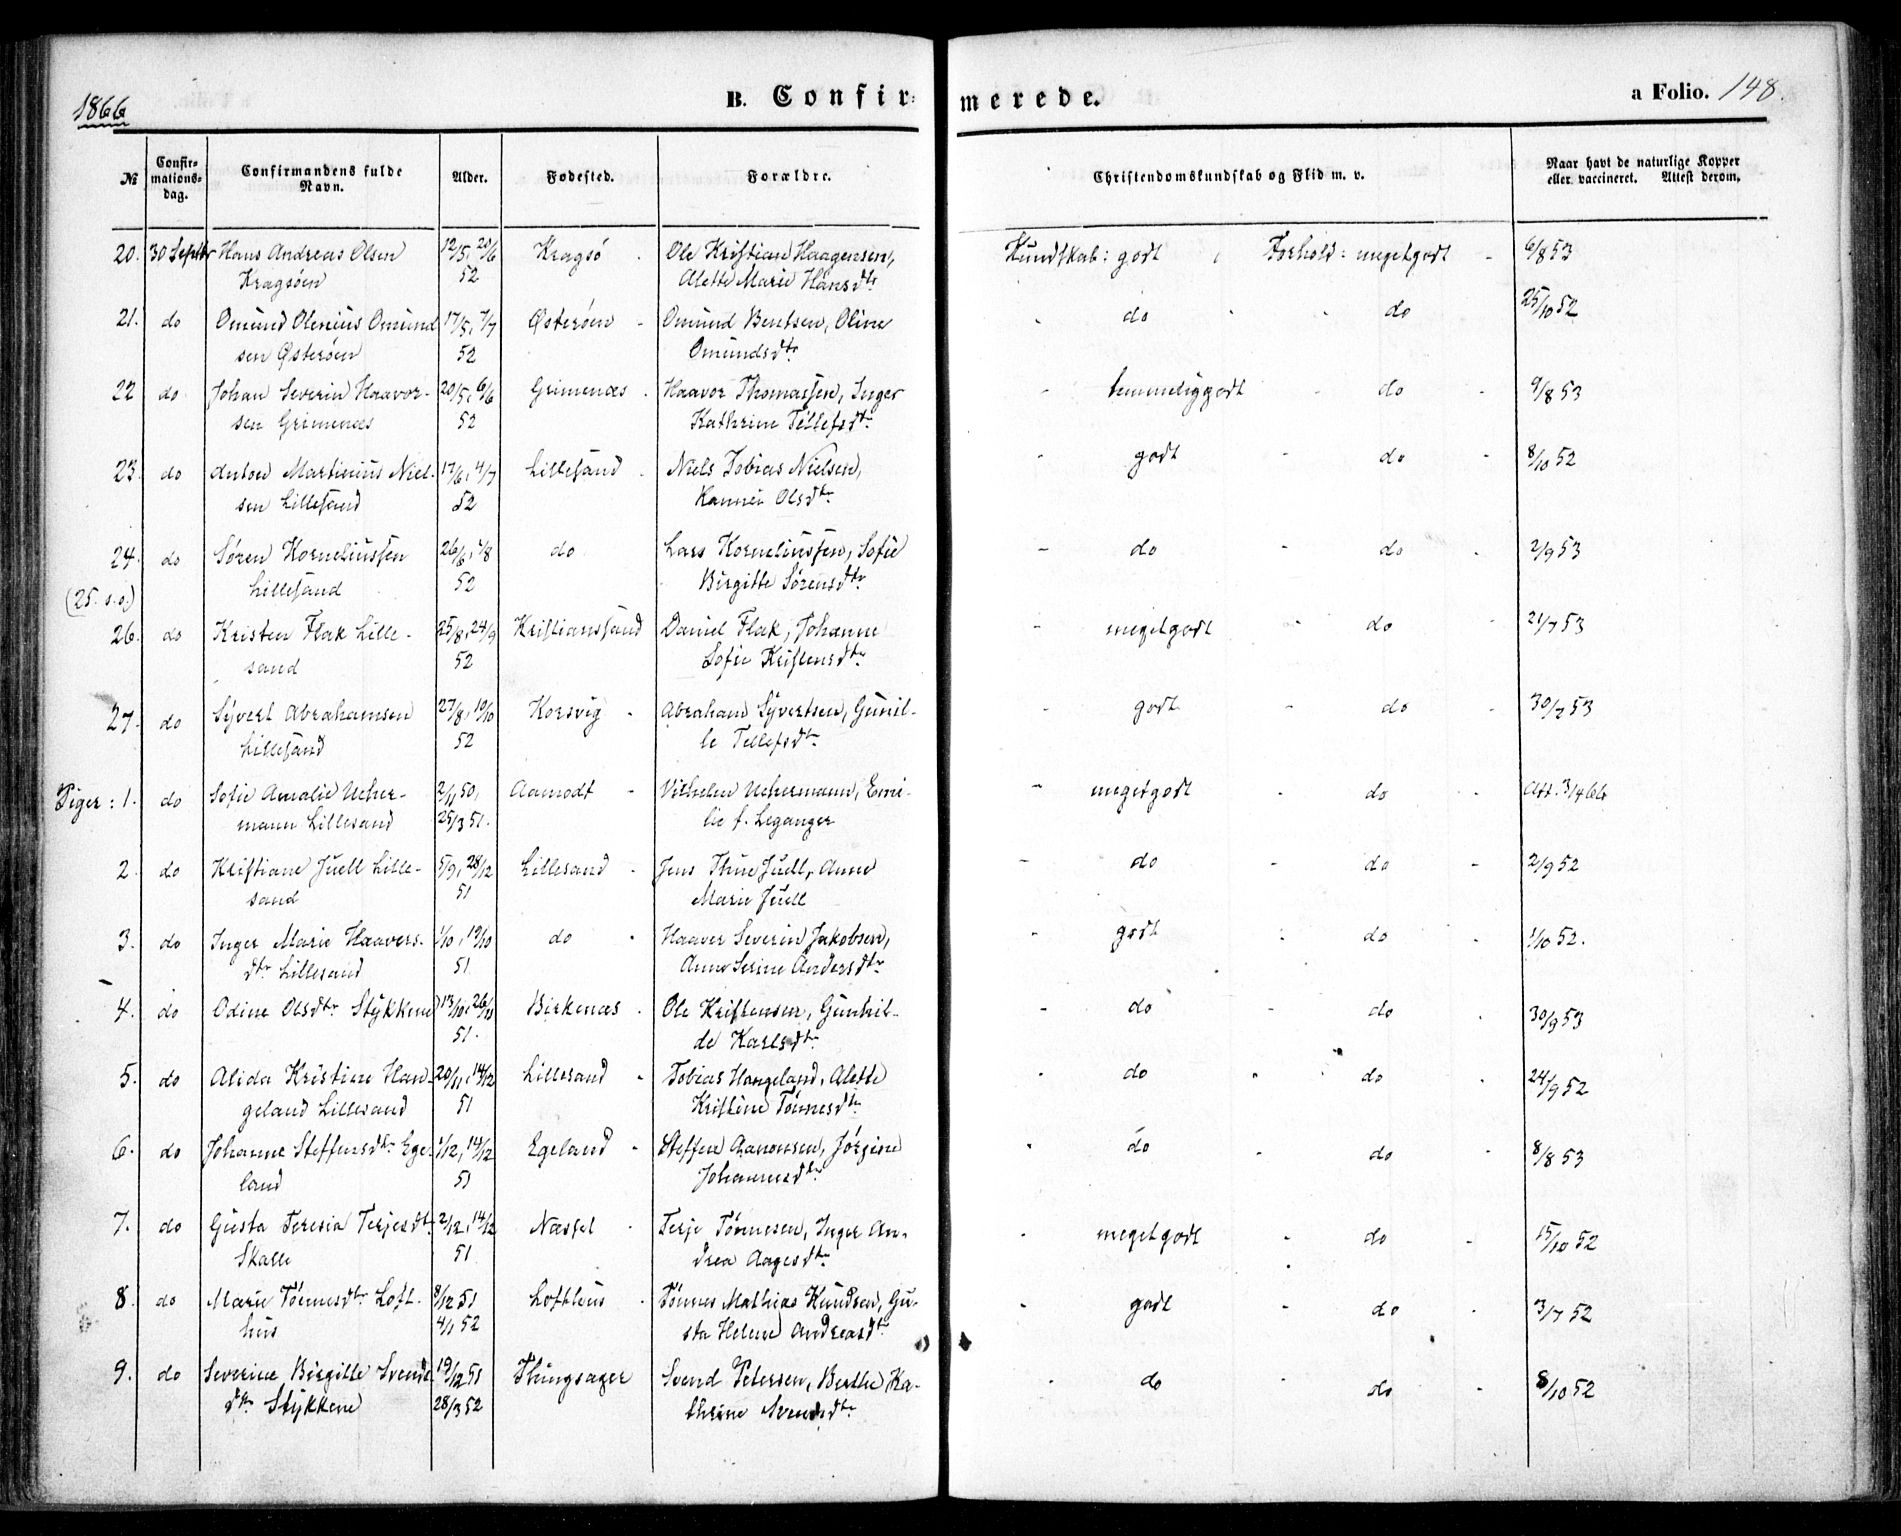 1866
B. Confirmerede.
a Folio. 148.
No Confirmationsdag. Confirmandens fulde Navn. Alder. Fødested. Forældre. Christendomskundskab og Flid m. v. Naar havt de naturlige Kopper eller vaccineret. Attest derom.
20. 30 Septbr Hans Andreas Olsen 12/5, 20/6 Kragsø Ole Kristian Haagensen, Kundskab: godt, Forhold: megetgodt - 6/8 53
Kragsöen 52 Alette Marie Hansdtr
21. do Omund Olenius Omund 17/5, 7/7 Østerøen - Omund Bentsen, Oline do do 25/10 52
sen Østerøen 52 Omundsdtr
22 do Johan Severin Haavor- 20/5, 6/6 Grimenæs - Haavor Thomassen, Inger temmeliggodt - do - 9/8 53
sen Grimenæs 52 Kathrine Tellefsdtr
23. do Anton Martinius Niel- 17/6, 4/7 Lillesand - Niels Tobias Nielsen, godt - do - 8/10 52
sen Lillesand 52 Olsdtr
24. do Søren Korneliussen 26/6, 1/8 do Lars Korneliussen, Sofie - do - do - 2/9 53
(25. s. o.) Lillesand 52 Birgitte Sørensdtr
26. do Kristen Flak Lille- 25/8, 24/9 Kristianssand Daniel Flak, Johanne - megetgodt - do 21/7 53
sand 52 Sofie Kristensdtr
27. do Syvert Abrahamsen 27/8, 10/10 Korsvig - Abraham Syvertsen, Gunil- godt - do - 30/7 53
Lillesand 52 le Tellefsdtr
Piger: 1. do Sofie Amalie Ucher- 2/11 50, Aamodt - Vilhelm Uchermann, Emi- - megetgodt - do - Att. 3/4 66
mann Lillesand 25/3 51. lie f. Leganger
2. do Kristiane Juell Lille- 5/9, 28/12 Lillesand - Jens Thue Juell, Anne - do - do - 2/9 52
sand 51 Marie Juell
3. do Inger Marie Haavers- 1/10, 19/10 do - Haaver Severin Jakobsen, - godt - do - 1/10 52.
dtr Lillesand 51 Anne Serine Andersdtr
4. do Odine Olsdtr Stykkene 13/10, 26/11 Birkenæs - Ole Kristensen, Gunhil- - do - do - 30/9 53
51. de Karlsdtr
5. do Alida Kristine Han- 20/11, 14/12 Lillesand - Tobias Hangeland, Alette - do - do - 24/9 52
geland Lillesand 51 Kristine Tönnesdtr
6. do Johanne Steffensdtr Ege- 1/12, 14/12 Egeland - Steffen Aanonsen, Jørgine - do - do - 8/8 53
land 51 Johannesdtr
7. do Gusta Teresia Terjesdtr 2/12, 14/12 Næssel - Terje Tönnesen, Inger An- - megetgodt - do - 15/10 52
Skalle 51 drea Aagesdtr
8. do Marie Tönnesdtr Loft- 8/12 51 Lofthus - Tönnes Mathias Knudsen, Gu- - godt - do - 3/7 52
hus 4/1 52 sta Helene Andreasdtr
9. do Severine Birgitte Svends 19/12 51 Thingsager Svend Petersen, Berthe Ka- - do - do - 8/10 52
dtr Stykkene 28/3 52 thrine Svendsdtr